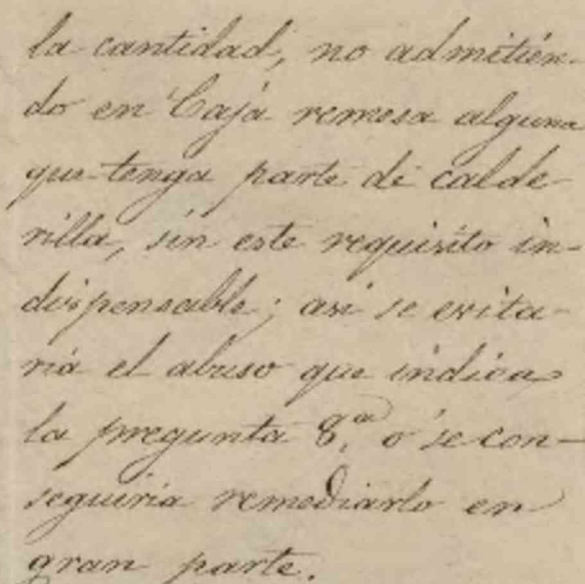 la cantidad, no admitién-
do en Caja remesa alguna
que tenga parte de calde-
rilla, sin este requisito in-
dispensable; asi se evita-
ria el abuso que indica
la pregunta 8.ª o se con-
seguiria remediarlo en
gran parte.